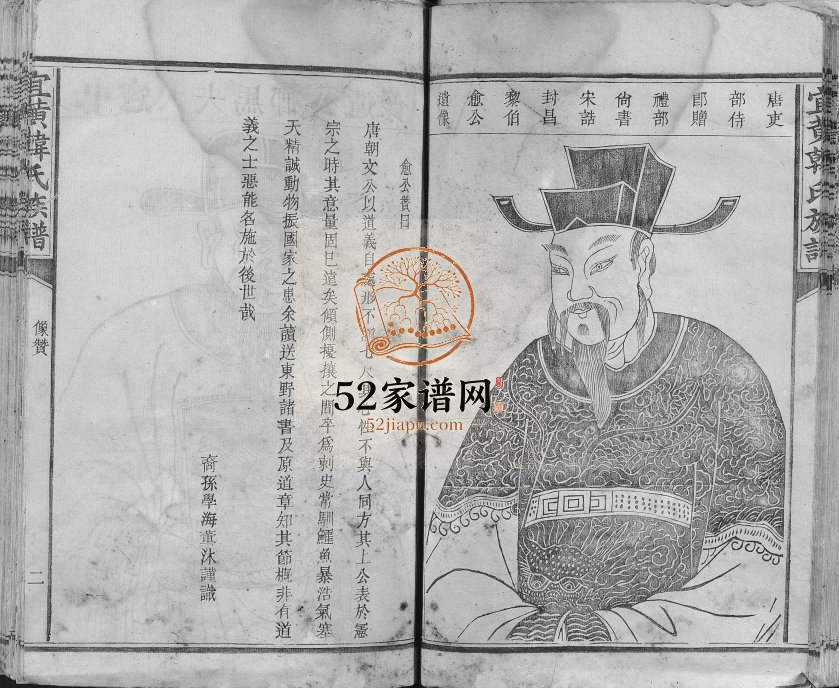 宜黄韓氏族譜
唐吏
部侍
郎贈
禮部
尚書
宋誥
封昌
黎伯
愈公
遺像
愈公贊曰
唐朝文公以道義自形不七性不與人同方其上公表於憲
宗之時其意量固已遠矣傾側擾攘之間卒爲刺史常馴鱷魚暴浩氣塞
天精誠動物振國家之患余讀送東野諸書及原道章知其節概非有道
義之士惡能名施於後世哉
裔孫學海薰沐謹識
宜黄韓氏族譜
像贊
二
52家谱网
52jiapu.com